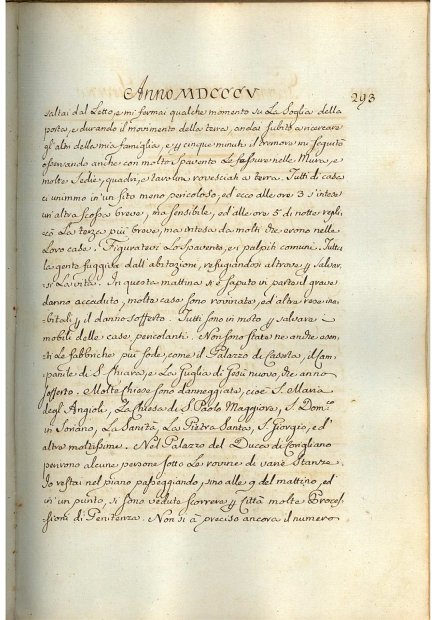 Anno MDCCCV
293
saltai dal Letto, e mi fermai qualche momento su La Soglia della
porta, e durando il movimento della terra, andai subito a cercare
gl'altri della mia famiglia, e cinque minuti il tremore mi seguitò
osservando anche con molto Spavento Le fessure nelle Mura, e
molte Sedie, quadri, e tavolini rovesciati a terra. Tutti di casa
ci unimmo in un sito meno pericoloso, ed ecco alle ore 3 s'intese
un'altra scossa breve, ma sensibile, ed alle ore 5 di notte repli,
cò La terza più breve, ma intesa da molti che erano nelle
Loro case. Figuratevi Lo Spavento, e i palpiti comuni. Tutta
la gente fuggiva dall'abitazioni, refugiandosi altrove salvar,
si La vita. In questa mattina si è saputo in parte il grave
danno accaduto, molte case sono rovinate, ed altre rese ina,
bitabili il danno sofferto. Tutti sono in moto salvare i
mobili delle case pericolanti. Non sono state ne anche esen,
ti Le fabbriche più sode, come il Palazzo di Caserta, il Cam,
panile di S. Chiara, e La Guglia di Gesù nuovo, che anno
sofferto. Molte chiese sono danneggiate, cioè S. Maria
degl'Angioli, La Chiesa di S. Paolo Maggiore, S. Dom.co
in Soriano, La Sanità, La Pietra Santa, S. Giorgio, ed
altre moltissime. Nel Palazzo del Duca di Corigliano
perirono alcune persone sotto Le rovine di varie Stanze.
Io restai nel piano passeggiando, sino alle 9 del mattino, ed
in un punto, si sono vedute scorrere Città molte Proces,
sioni di Penitenza. Non si à preciso ancora il numero